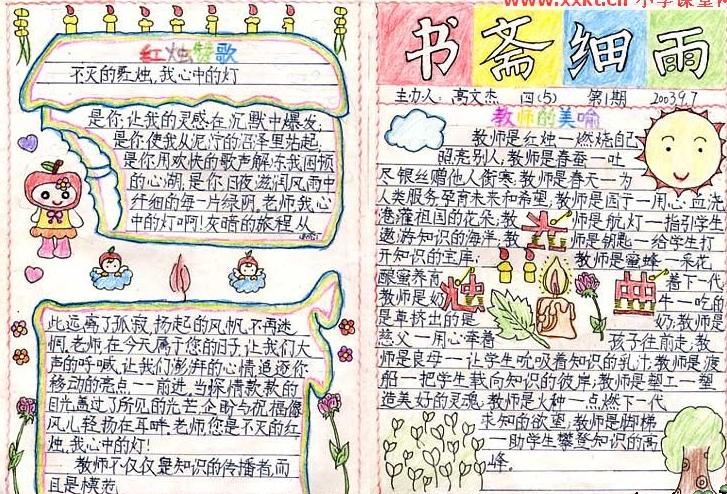 红烛赞歌
不灭的红烛,我心中的灯
是你,让我的灵感在沉默中爆发;
是你,使我从泥泞的沼泽里站起,
是你,用欢快的歌声解冻我困顿
的心湖,是你,日夜滋润风雨中
纤细的每一片绿阴。老师我心
中的灯啊!灰暗的旅程从
此远离了孤寂,扬起的风帆,不再迷
惘,老师,在今天属于您的日子,让我们大
声的呼喊,让我们澎湃的心情追逐你
移动的亮点——前进,当深情款款的
目光盖过了所见的光芒,企盼与祝福像
风儿轻扬在耳畔,老师您是不灭的红
烛。我心中的灯!
教师不仅仅是知识的传播者,而
且是模范
www.xxkt.cn 小学课堂网
书斋细雨
主办人:高文杰 四(5) 第1期 2003.9.7
教师的美喻
教师是红烛—燃烧自己
照亮别人,教师是春蚕—吐
尽银丝赠他人御寒;教师是春天—为
人类服务孕育未来和希望,教师是园丁—用心血浇
灌祖国的花朵;教师是航灯—指引学生
遨游知识的海洋;教师是钥匙—给学生打
开知识的宝库;教师是蜜蜂—采花
酿蜜养育着下一代
教师是奶牛—吃的
是草挤出的是奶,教师是
慈父—用心牵着孩子往前走,教
师是良母—让学生吮吸着知识的乳汁,教师是渡
船—把学生载向知识的彼岸;教师是塑工—塑
造美好的灵魂,教师是火种—点燃下一代
求知的欲望;教师是脚梯
—助学生攀登知识的高
峰。
烛